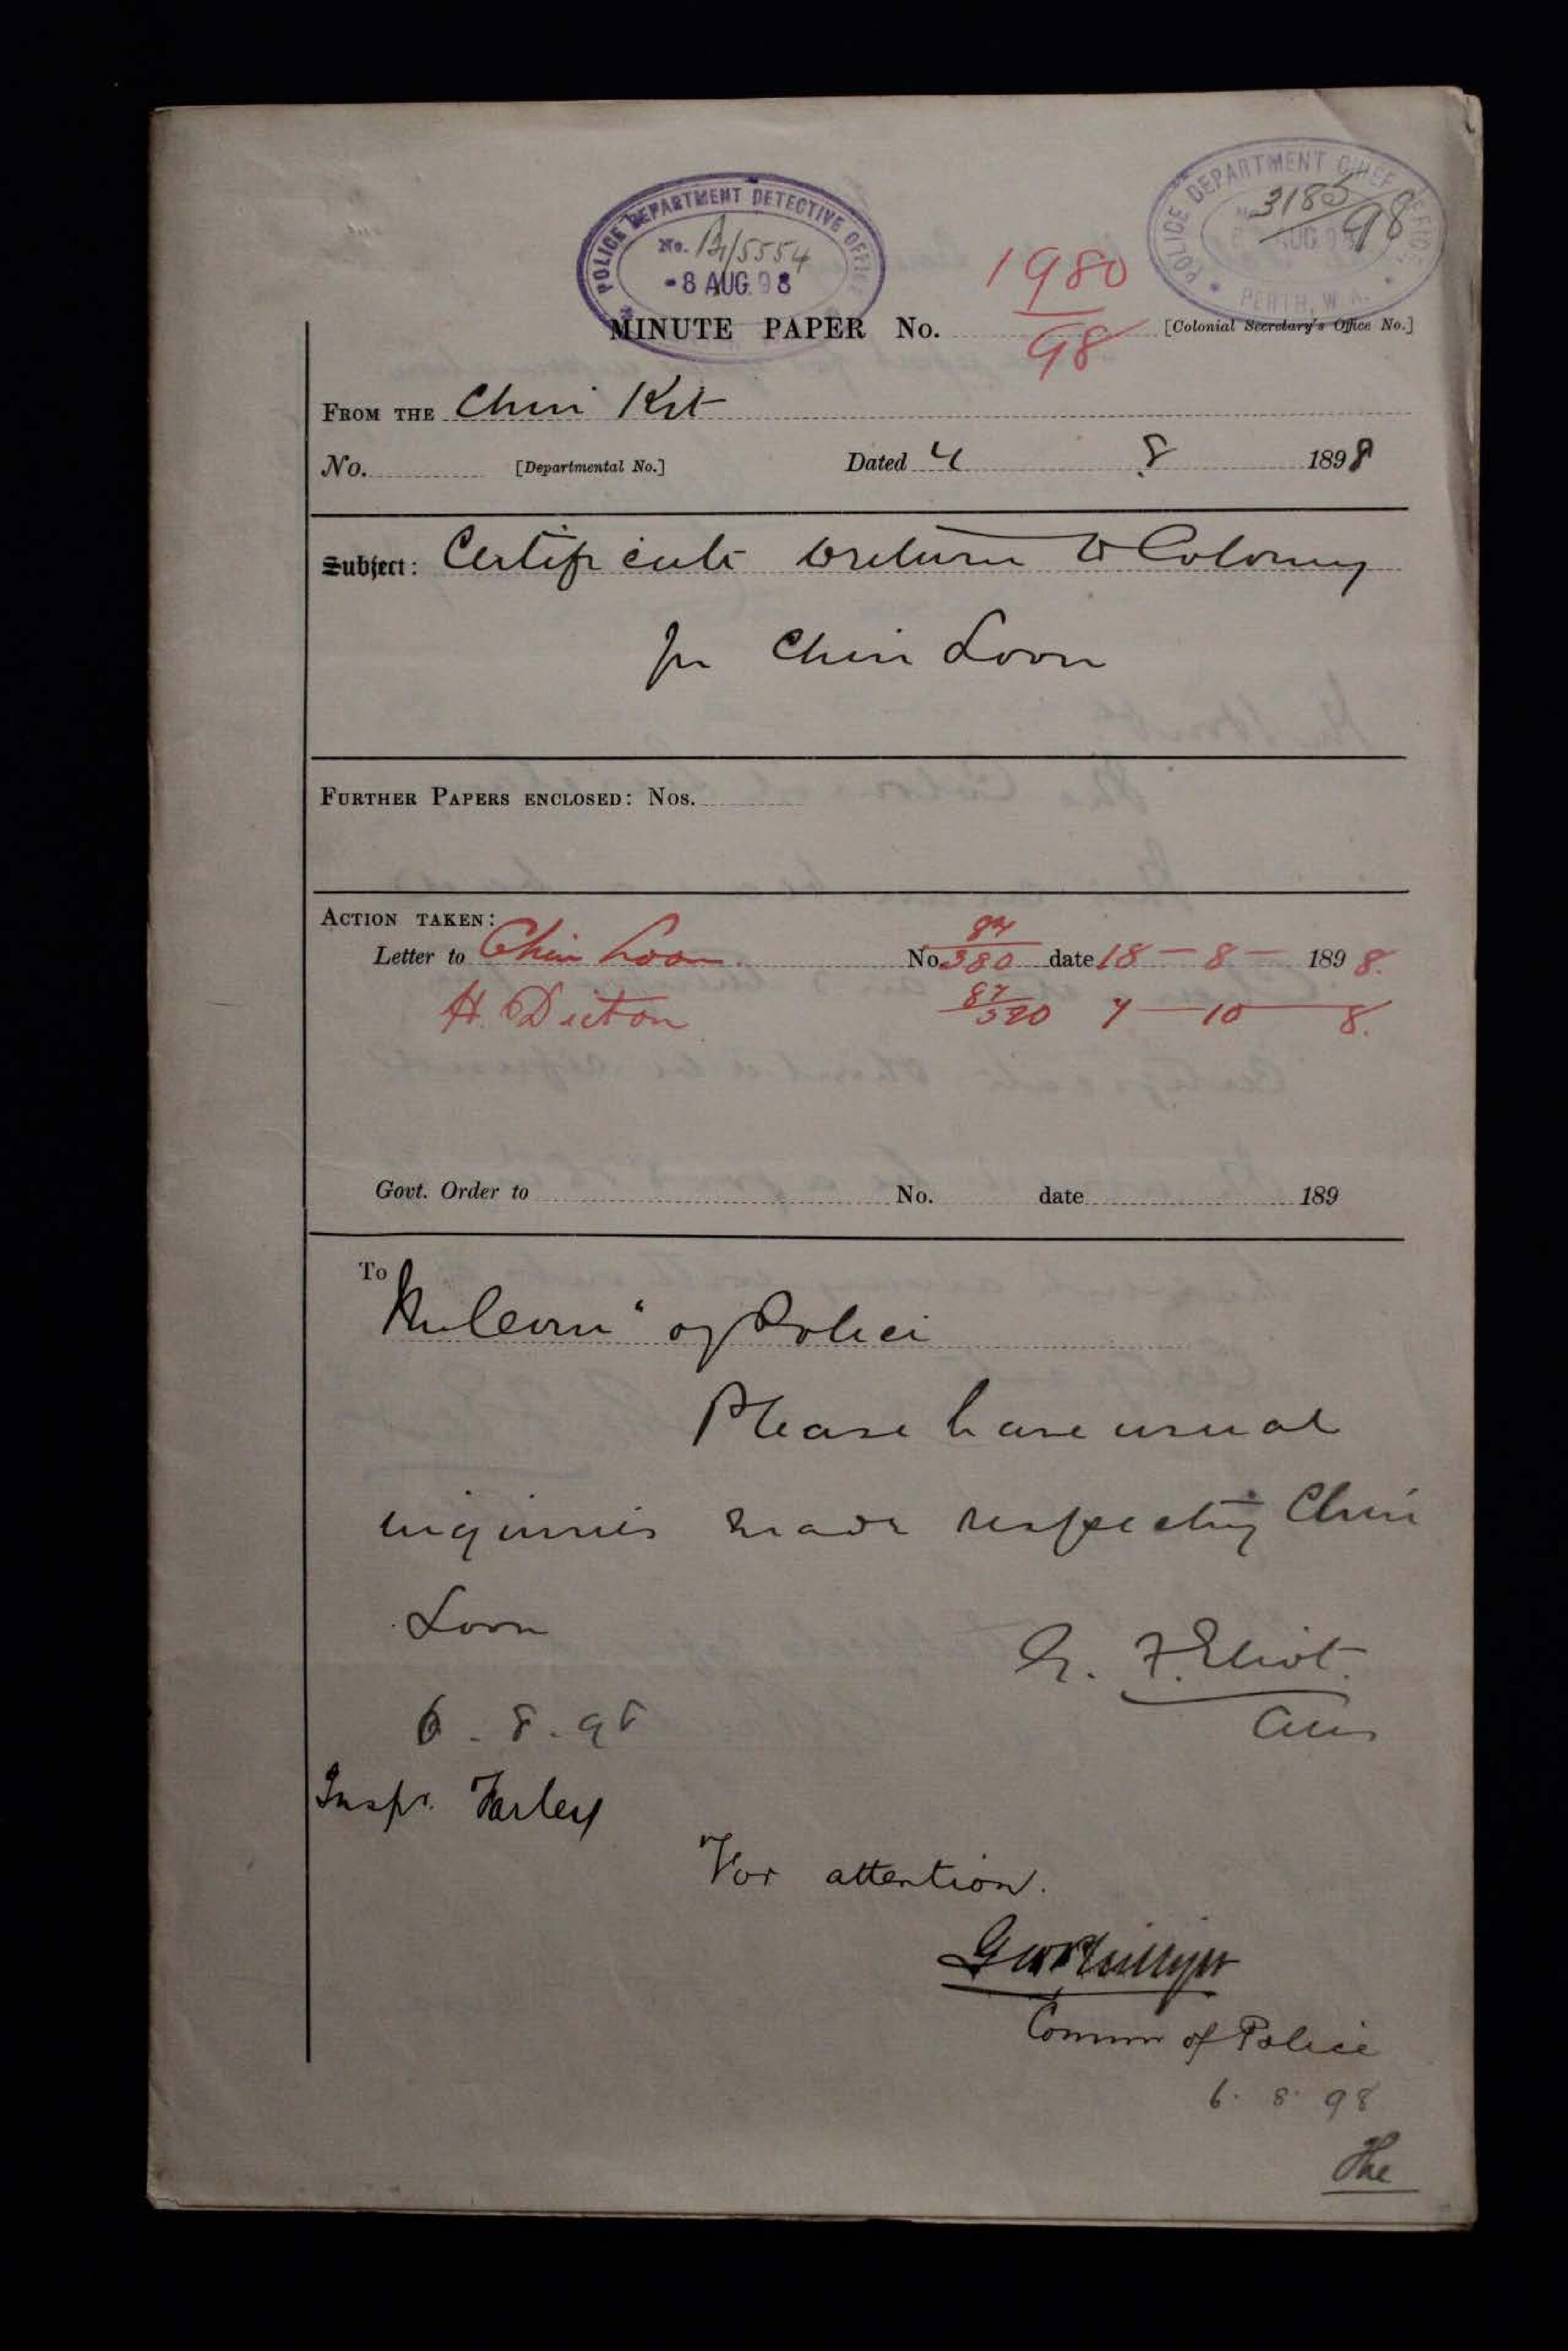 POLICE DEPARTMENT DETECTIVE OFFICE
No. B/5554
-8 AUG. 98
POLICE DEPARTMENT CHIEF OFFICE
3185/98
AUG 98
PERTH, W.A.
1980/98
MINUTE PAPER No. [Colonial Secretary's Office No.]
FROM THE Chin Kit
No. [Departmental No.] Dated 4 8 1898
Subject: Certificate to return to Colony
for Chin Loon
FURTHER PAPERS ENCLOSED: Nos.
ACTION TAKEN:
Letter to Chin Loon No. 84/380 date 18-8-1898.
H. Dixon 87/520 7-10 8.
Govt. Order to No. date 189
To
The Comr of Police
Please have usual
inquiries made respecting Chin
Loon
G. F. Eliot.
6.8.98
Inspr. Farley
For attention.
Geo Phillips
Commr of Police
6. 8. 98
The